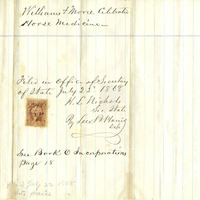 Williams & Moore Celebrated
Horse Medicine
Filed in Office of Secretary
of State July 22d 1868
H. L. Nichols
Sec. State
By Lew B.
Dep
See Book C Incorporations
Page 18
July 22 1868